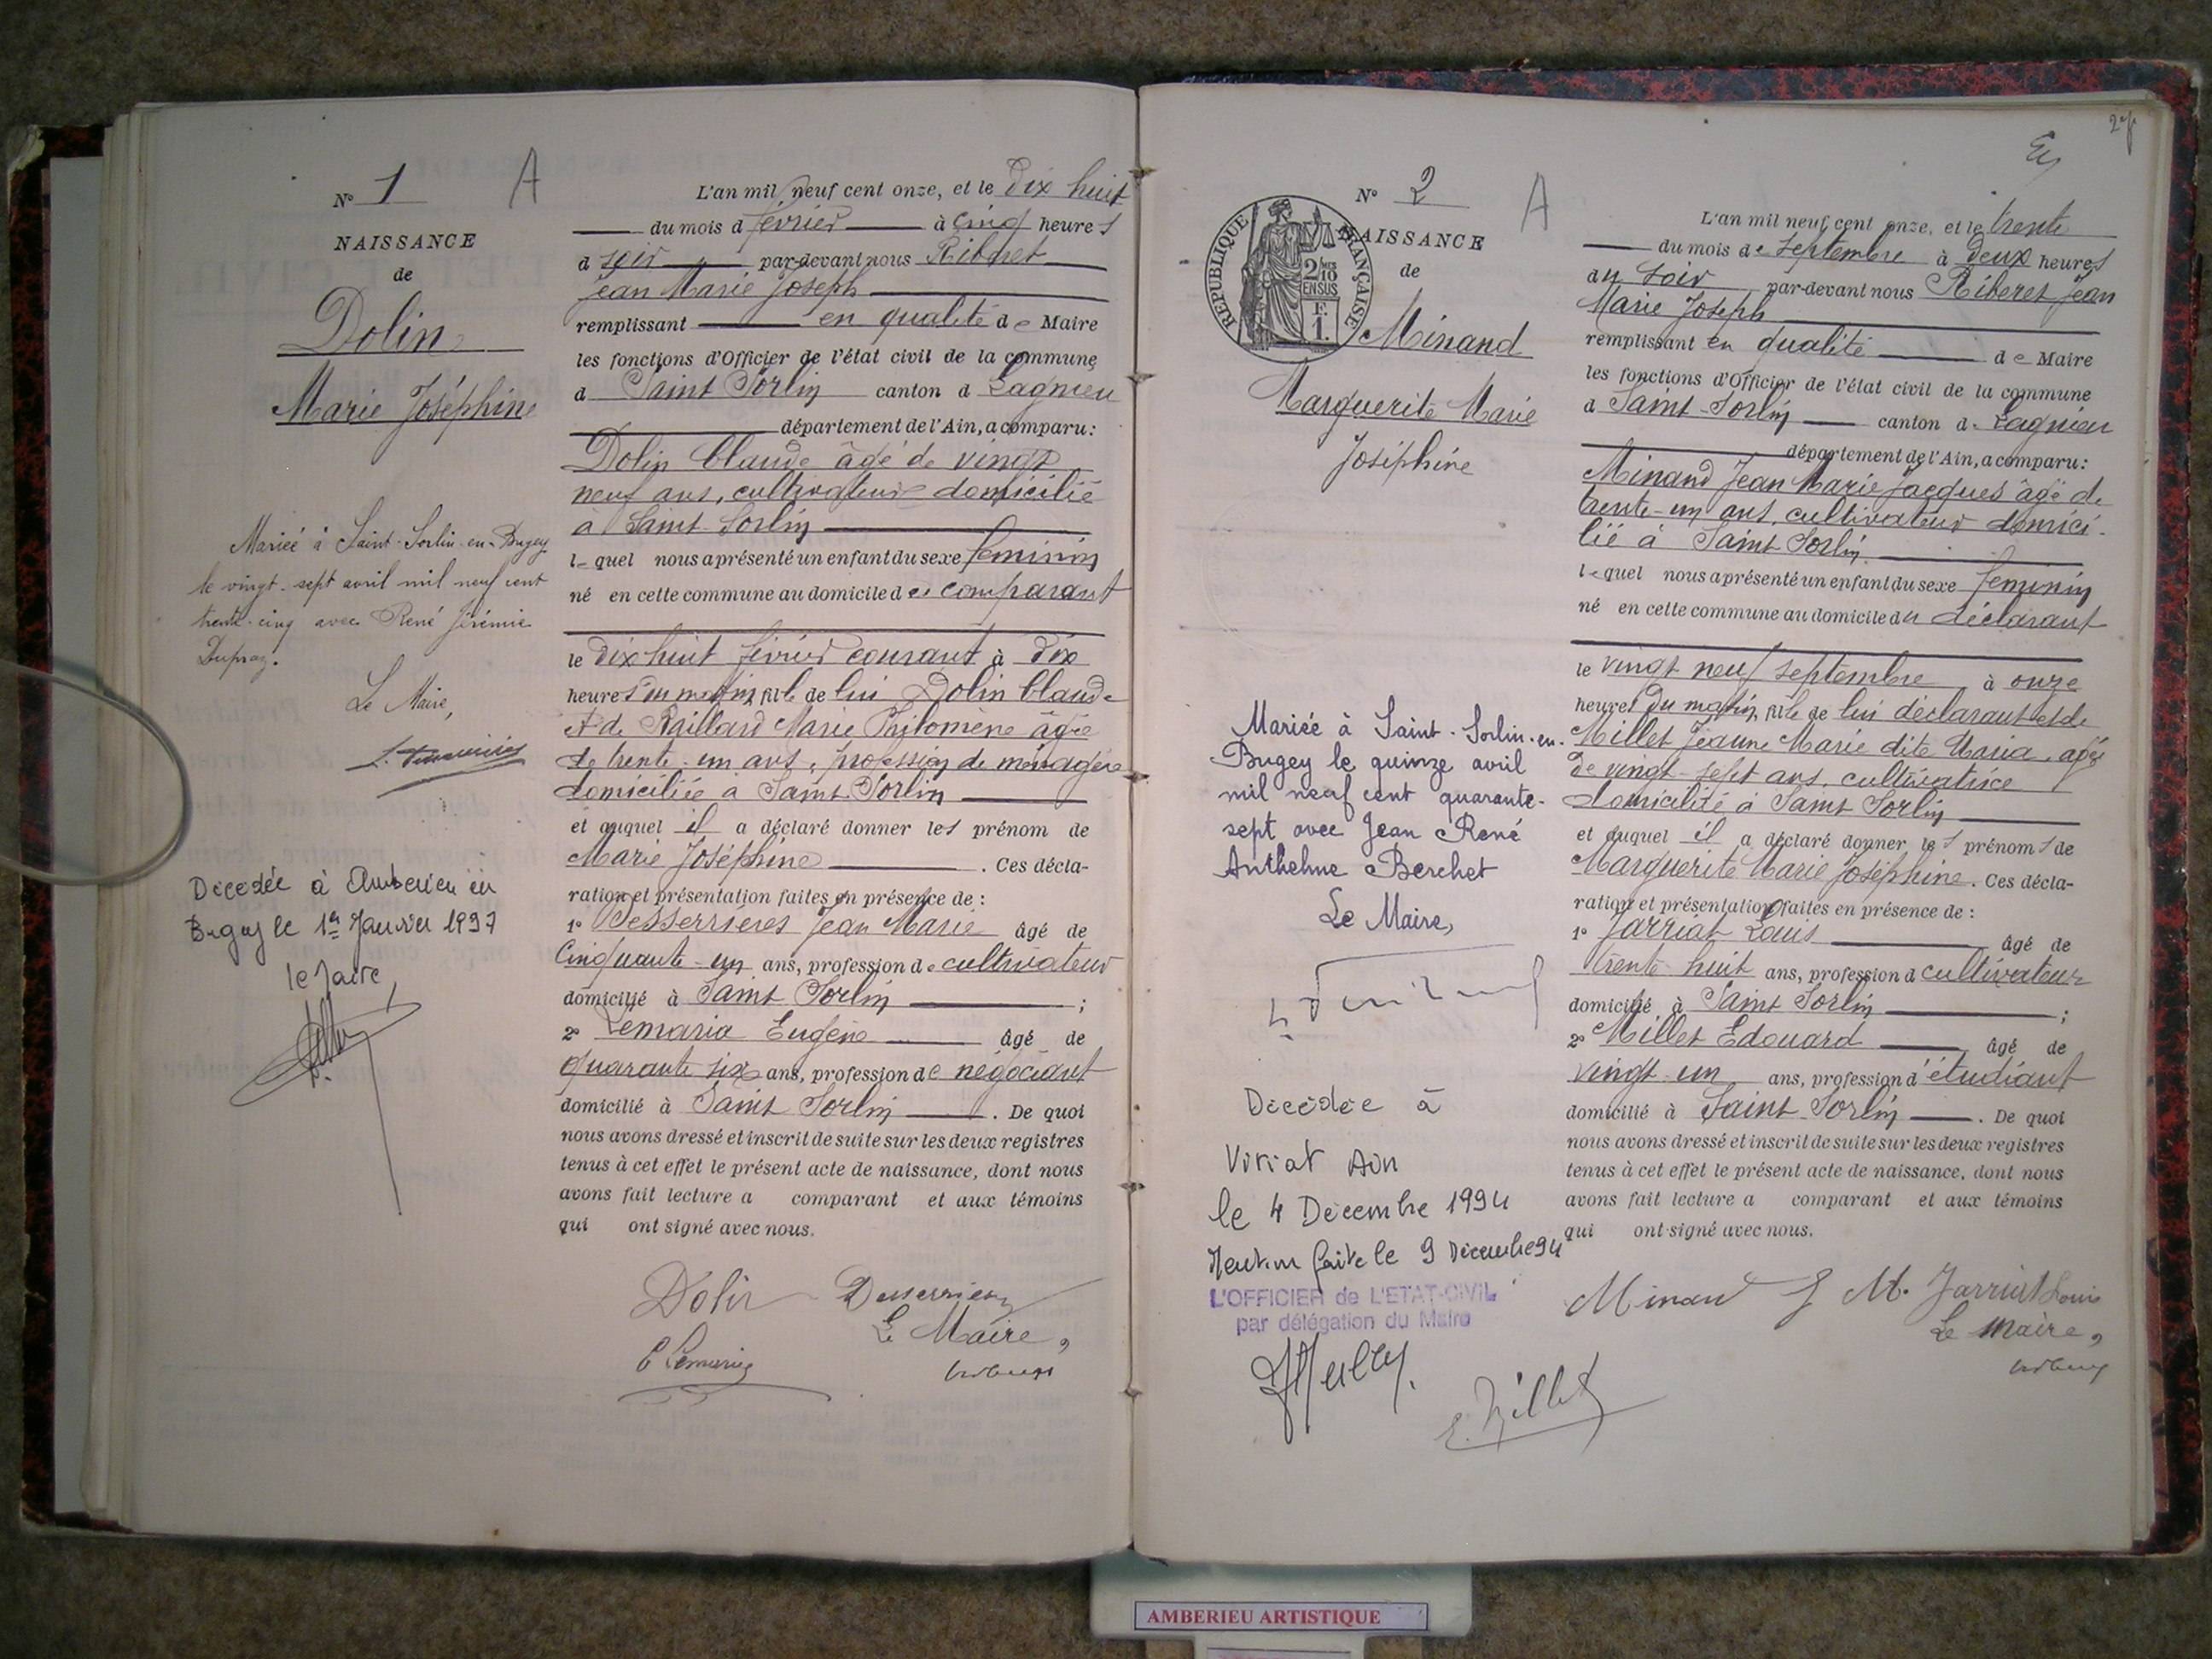 N° 1 A
NAISSANCE
de
Dolin
Marie Joséphine
Mariée à Saint-Sorlin-en-Bugey
le vingt-sept avril mil neuf cent
trente-cinq avec René Jérémie
Dupraz.
Le Maire,
Décédée à Amberieu en
Bugey le 1er Janvier 1997
le Maire,
L'an mil neuf cent onze, et le dix huit
du mois d février à cinq heures
d soir par-devant nous Riberet
Jean Marie Joseph
remplissant en qualité de Maire
les fonctions d'Officier de l'état civil de la commune
d Saint Sorlin canton d Lagnieu
département de l'Ain, a comparu:
Dolin Claude âgé de vingt
neuf ans, cultivateur domicilié
à Saint-Sorlin
lequel nous a présenté un enfant du sexe feminin
né en cette commune au domicile de comparant
le dix huit février courant à dix
heures du matin, fille de lui Dolin Claude
et de Raillard Marie Philomène âgée
de trente-un ans, profession de ménagère
domiciliée à Saint Sorlin
et auquel il a déclaré donner les prénom de
Marie Joséphine. Ces décla-
ration et présentation faites en présence de:
1° Desserrieres Jean Marie âgé de
Cinquante-un ans, profession de cultivateur
domicilié à Saint Sorlin;
2° Lemaria Eugène âgé de
quarante six ans, profession de négociant
domicilié à Saint Sorlin. De quoi
nous avons dressé et inscrit de suite sur les deux registres
tenus à cet effet le présent acte de naissance, dont nous
avons fait lecture a comparant et aux témoins
qui ont signé avec nous.
Dolin Desserrieres
Le Maire,
E Lemaria
N° 2 A
RÉPUBLIQUE FRANÇAISE
2/10
EN SUS
F.
1.
NAISSANCE
de
Minand
Marguerite Marie
Joséphine
Mariée à Saint-Sorlin-en-
Bugey le quinze avril
mil neuf cent quarante-
sept avec Jean René
Anthelme Berchet
Le Maire,
Décédée à
Viriat Ain
le 4 Décembre 1994
Mention faite le 9 Décembre 94
L'OFFICIER de L'ETAT-CIVIL
par délégation du Maire
L'an mil neuf cent onze, et le trente
du mois de septembre à deux heures
du soir par-devant nous Riberet Jean
Marie Joseph
remplissant en qualité de Maire
les fonctions d'Officier de l'état civil de la commune
d Saint-Sorlin canton d Lagnieu
département de l'Ain, a comparu:
Minand Jean Marie Jacques âgé de
trente-un ans, cultivateur domici-
lié à Saint Sorlin
lequel nous a présenté un enfant du sexe feminin
né en cette commune au domicile du déclarant
le vingt neuf septembre à onze
heures du matin, fille de lui déclarant et de
Millet Jeanne Marie dite Maria, agée
de vingt-sept ans, cultivatrice
domicilié à Saint Sorlin
et auquel il a déclaré donner les prénoms de
Marguerite Marie Joséphine. Ces décla-
ration et présentation faites en présence de:
1° Jarriat Louis âgé de
trente huit ans, profession d cultivateur
domicilié à Saint Sorlin;
2° Millet Edouard âgé de
vingt-un ans, profession d'étudiant
domicilié à Saint-Sorlin. De quoi
nous avons dressé et inscrit de suite sur les deux registres
tenus à cet effet le présent acte de naissance, dont nous
avons fait lecture a comparant et aux témoins
qui ont signé avec nous.
Minand J M. Jarriat Louis
Le Maire,
E. Millet
AMBERIEU ARTISTIQUE